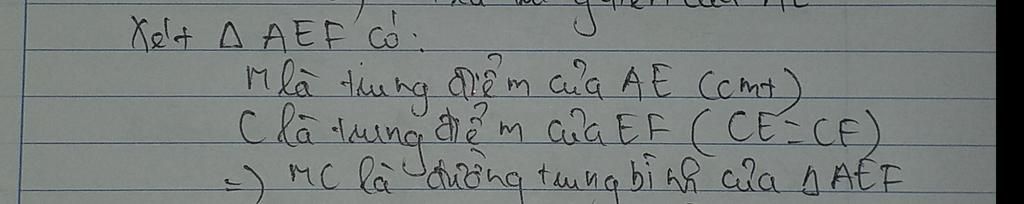 Xét Δ AEF có:
M là trung điểm của AE (cmt)
C là trung điểm của EF (CE=CF)
=) MC là đường trung bình của Δ AEF